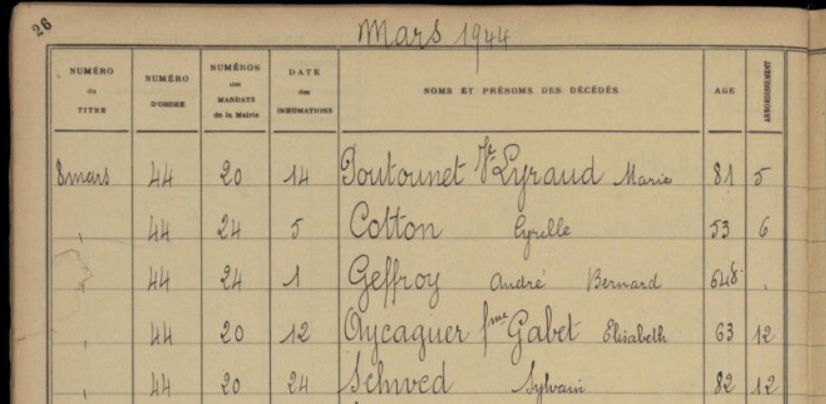 26
Mars 1944
NUMÉRO du TITRE NUMÉRO D'ORDRE NUMÉROS des MANDATS de la Mairie DATE des INHUMATIONS NOMS ET PRÉNOMS DES DÉCÉDÉS AGE ARRONDISSEMENT
8 mars 44 20 14 Poutounet Vve Lyraud Marie 81 5
" 44 24 5 Cotton Cyrille 53 6
" 44 24 1 Geffroy André Bernard
" 44 20 12 Oycaguer fme Gabet Elisabeth 63 12
" 44 20 24 Schwed Sylvain 82 12